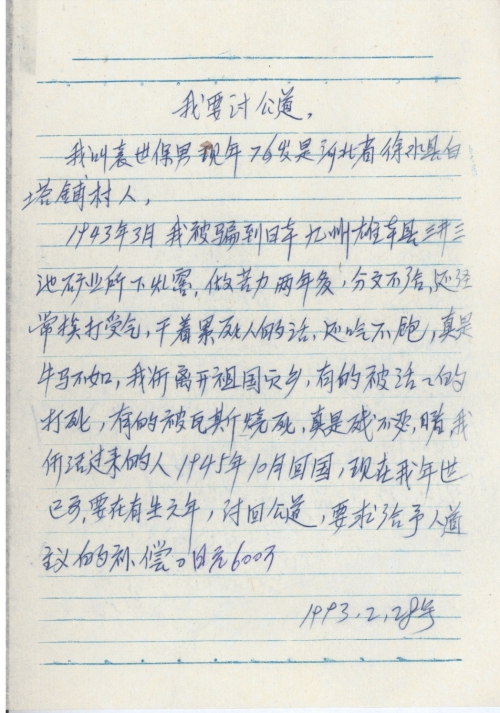 我要讨公道,
我叫袁世保男现年76岁是河北省徐水县白
塔铺村人,
1943年3月我被骗到日本九州雄本县三井三
池矿业所下火窑,做苦力两年多,分文不给,还经
常挨打受气,干着累死人的活,还吃不饱,真是
牛马不如,我们离开祖国家乡,有的被活活的
打死,有的被瓦斯烧死,真是残不忍睹,我
们活过来的人1945年10月回国,现在我年世
已高,要在有生之年,讨回公道,要求给予人道
主义的补偿。日元600万
1993.2.28号